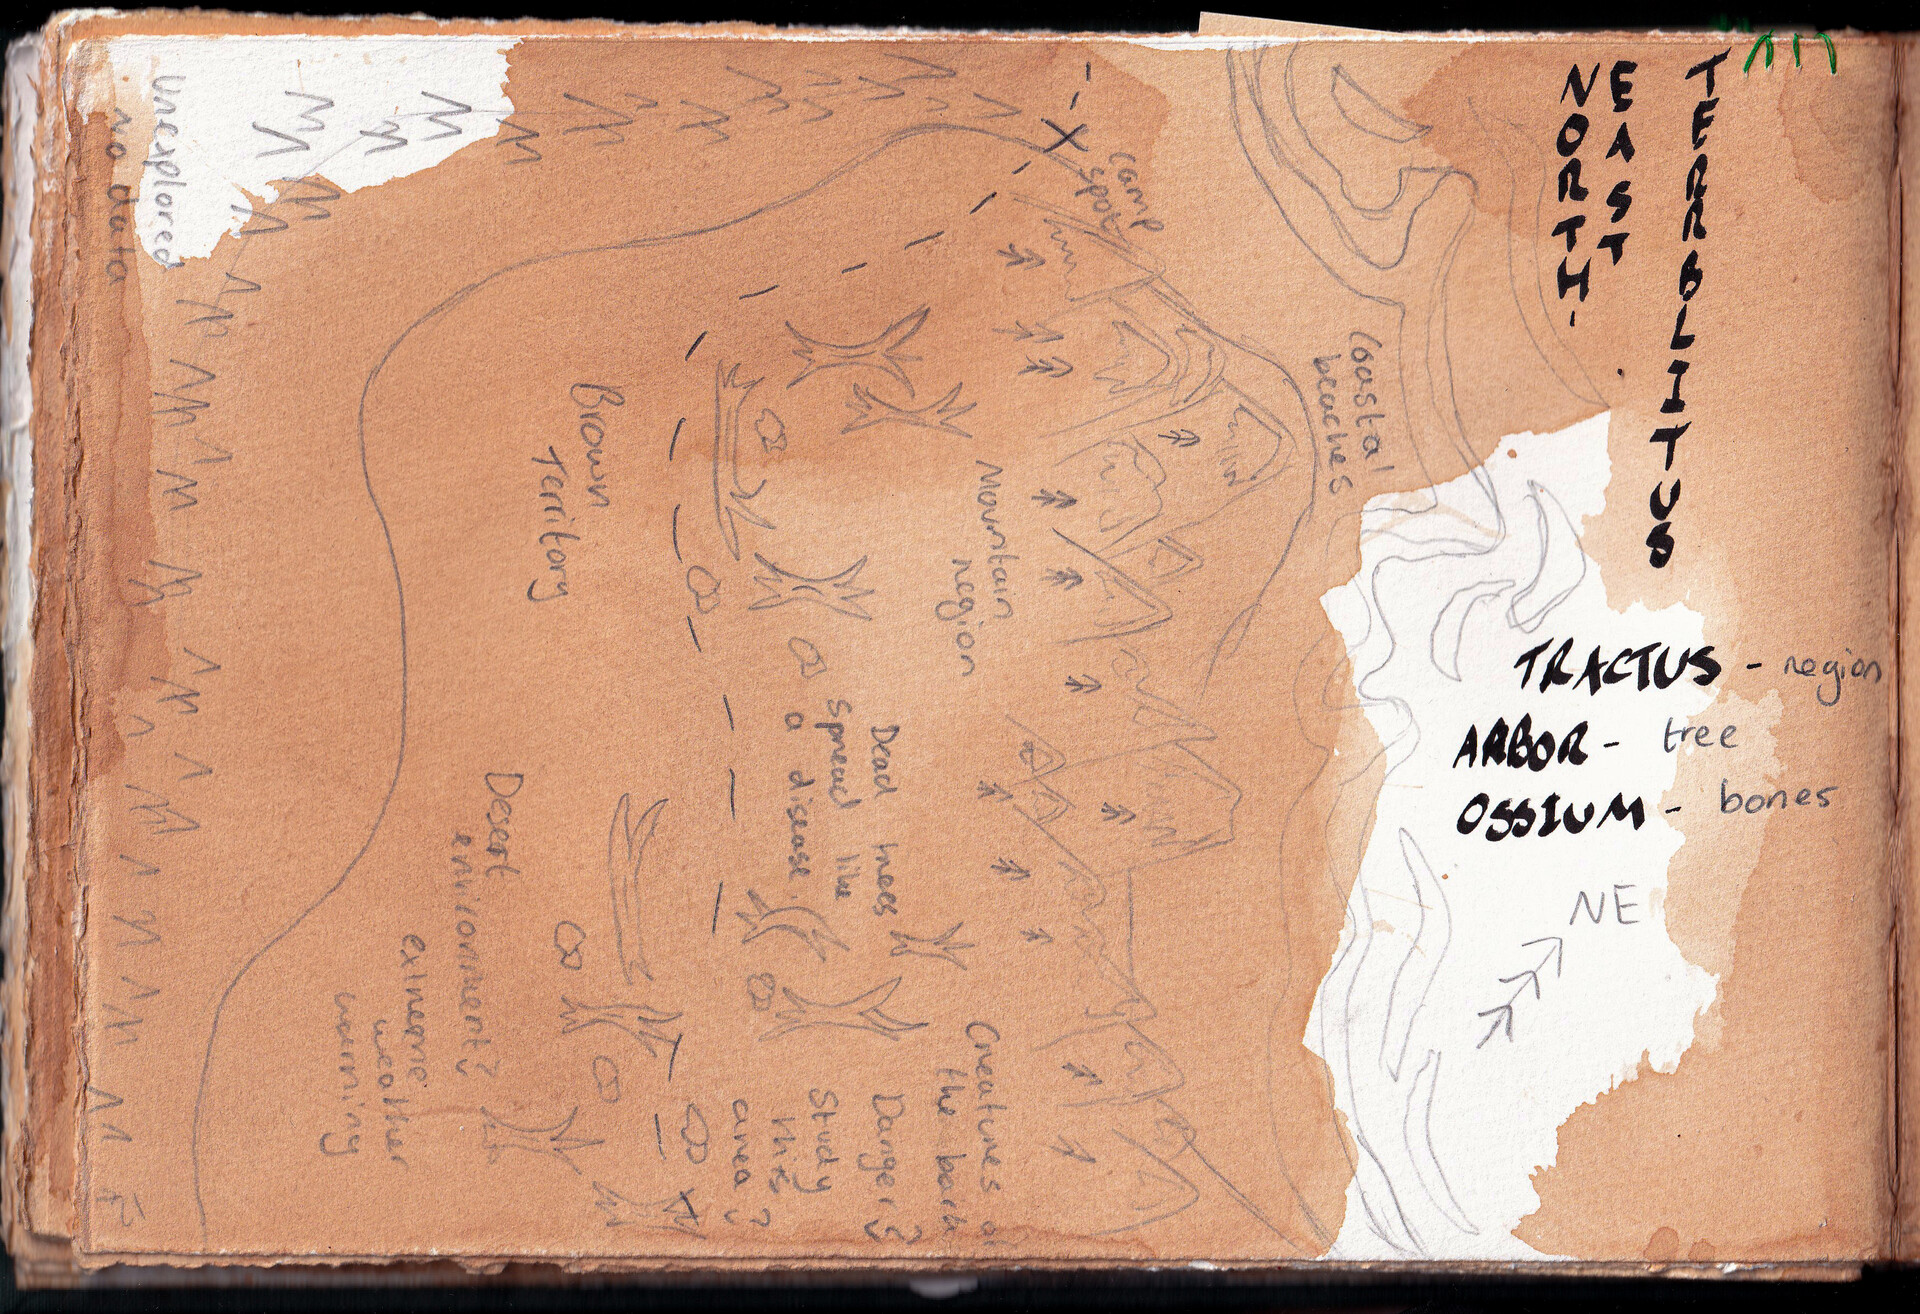 TERRBLITUS
NORTH-
EAST
TRACTUS - region
ARBOR - tree
OSSIUM - bones
NE
camp
spot
Coastal
beaches
Mountain
region
Brown
Territory
Dead trees
spread like
a disease.
Creatures of
the bark
Danger?
Study
this
area?
Desert
enviroment?
extreme
weather
warning
unexplored
no data